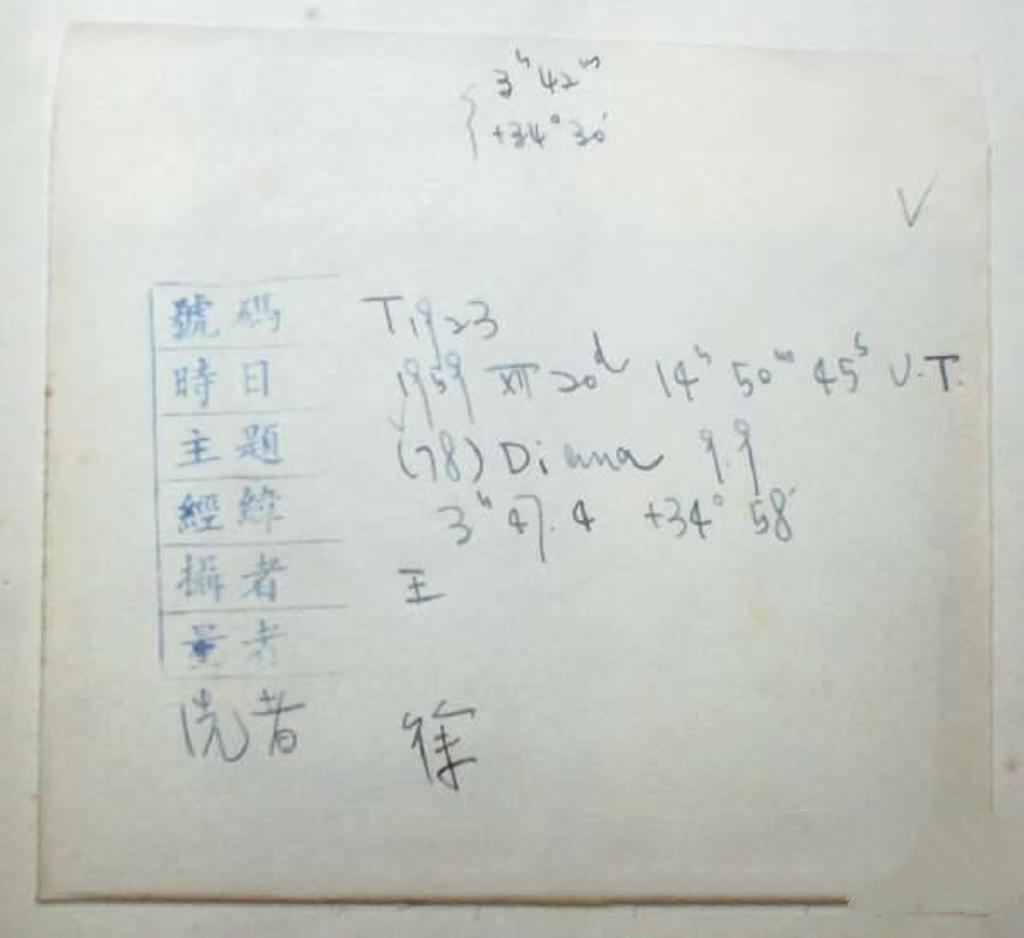 3ʰ 42ᵐ
+34° 30′
V
號碼 T1923
時日 1959 XII 20ᵈ 14ʰ 50ᵐ 45ˢ U.T.
主題 (78) Diana 9.9
經緯 3ʰ 47.4 +34° 58′
攝者 王
量者
洗者 徐